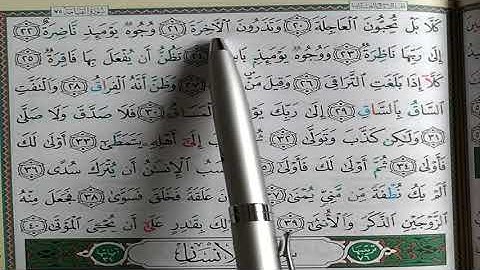 كَلَّا بَلْ تُحِبُّونَ الْعَاجِلَةَ ﴿٢٠﴾ وَتَذَرُونَ الْآخِرَةَ ﴿٢١﴾ وُجُوهٌ يَوْمَئِذٍ نَاضِرَةٌ ﴿٢٢﴾
إِلَىٰ رَبِّهَا نَاظِرَةٌ ﴿٢٣﴾ وَوُجُوهٌ يَوْمَئِذٍ ﴿٢٤﴾ تَظُنُّ أَن يُفْعَلَ بِهَا فَاقِرَةٌ ﴿٢٥﴾
كَلَّا إِذَا بَلَغَتِ التَّرَاقِيَ ﴿٢٦﴾ وَقِيلَ مَنْ وَظَنَّ أَنَّهُ الْفِرَاقُ ﴿٢٨﴾ وَالْتَفَّتِ
السَّاقُ بِالسَّاقِ ﴿٢٩﴾ إِلَىٰ رَبِّكَ يَوْمَئِذٍ ﴿٣٠﴾ فَلَا صَدَّقَ وَلَا صَلَّىٰ
﴿٣١﴾ وَلَٰكِن كَذَّبَ وَتَوَلَّىٰ ﴿٣٢﴾ إِلَىٰ أَهْلِهِ يَتَمَطَّىٰ ﴿٣٣﴾ أَوْلَىٰ لَكَ
فَأَوْلَىٰ ﴿٣٤﴾ ثُمَّ أَوْلَىٰ لَكَ فَأَوْلَىٰ الْإِنسَانُ أَن يُتْرَكَ سُدًى ﴿٣٦﴾
أَلَمْ يَكُ نُطْفَةً مِّن مَّنِيٍّ يُمْنَىٰ عَلَقَةً فَخَلَقَ فَسَوَّىٰ ﴿٣٨﴾ فَجَعَلَ مِنْهُ
الزَّوْجَيْنِ الذَّكَرَ وَالْأُنثَىٰ ﴿٣٩﴾ بِقَادِرٍ عَلَىٰ أَن يُحْيِيَ الْمَوْتَىٰ ﴿٤٠﴾